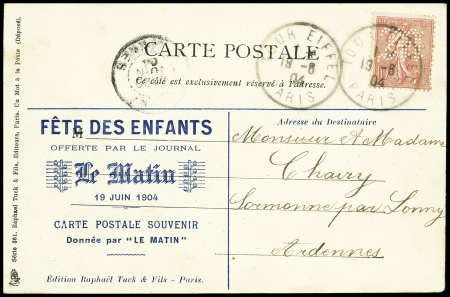 CARTE POSTALE
Ce côté est exclusivement réservé à l'adresse.
TOUR EIFFEL
19-6
04
PARIS
TOUR EIFFEL
19-6
04
PARIS
FÊTE DES ENFANTS
OFFERTE PAR LE JOURNAL
Le Matin
19 JUIN 1904
CARTE POSTALE SOUVENIR
Donnée par "LE MATIN"
Édition Raphaël Tuck & Fils - Paris.
Adresse du Destinataire
Monsieur et Madame
Chairy
Sormonne par Lonny
Ardennes
Série 561. Raphael Tuck & Fils, Editeurs, Paris. Un Mot à la Poste (Déposé).